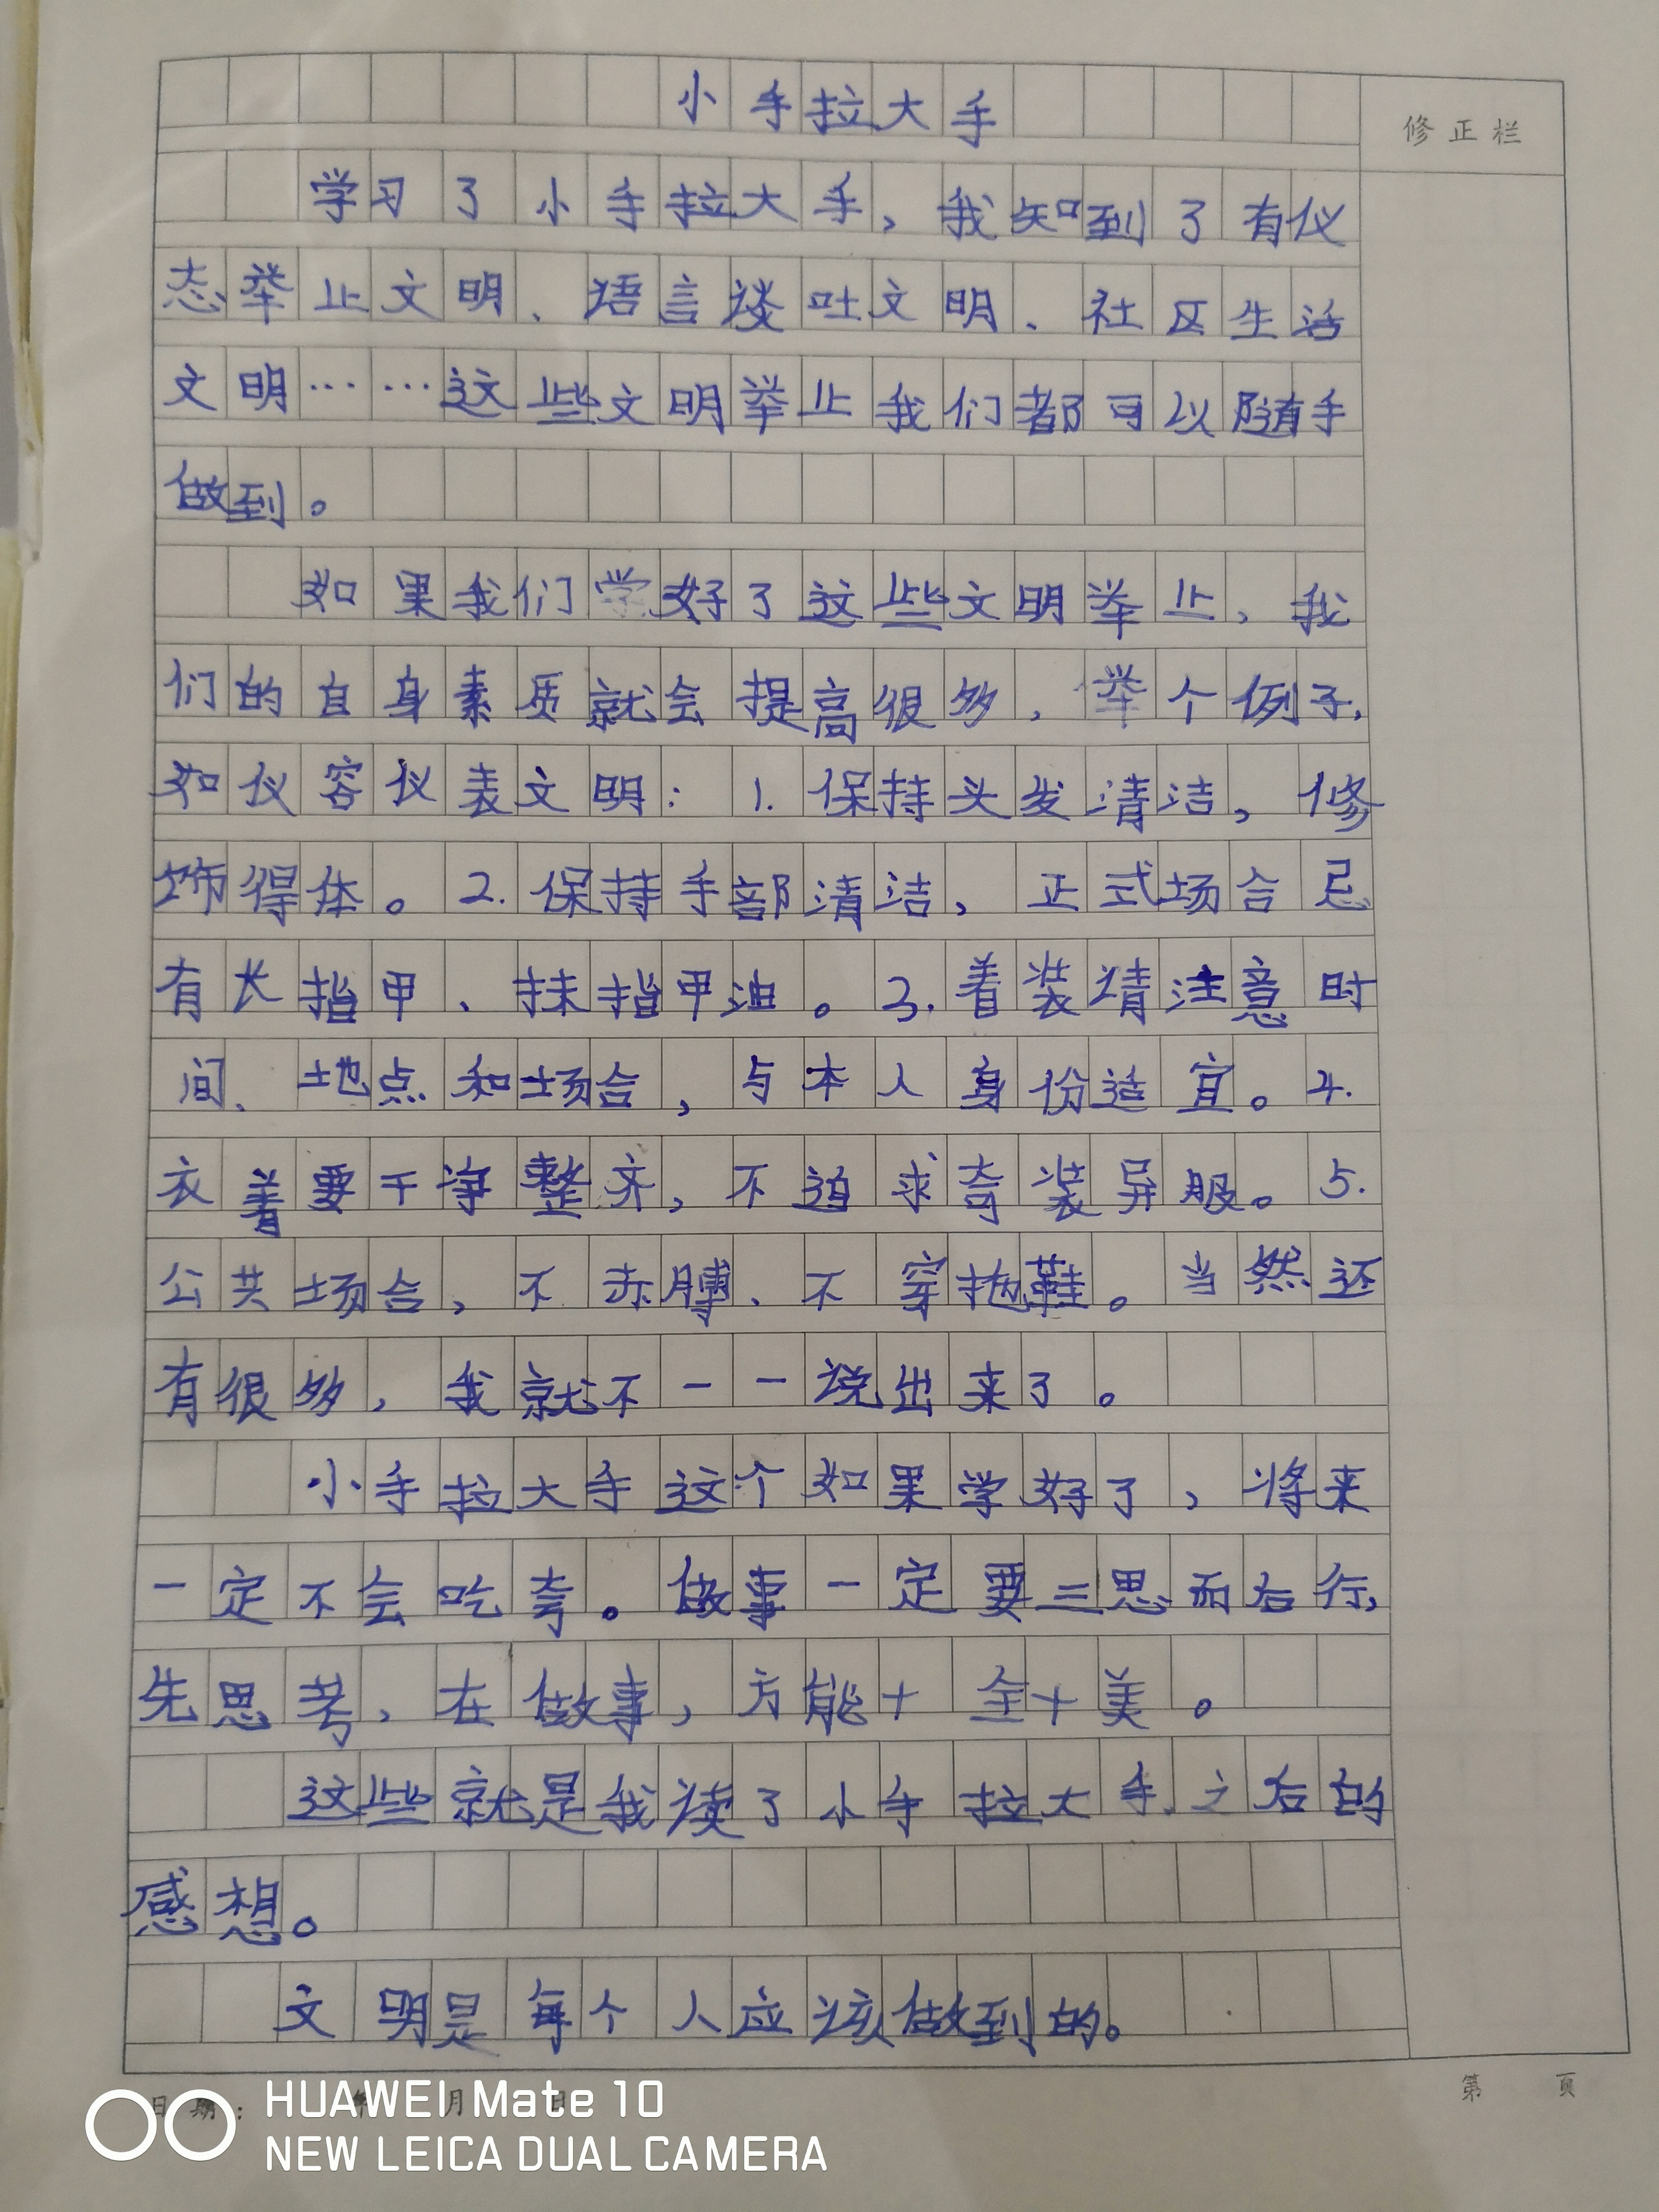 小手拉大手
修正栏
学习了小手拉大手，我知到了有仪
态举止文明、语言谈吐文明、社区生活
文明……这些文明举止我们都可以随手
做到。
如果我们学好了这些文明举止，我
们的自身素质就会提高很多，举个例子，
如仪容仪表文明：1.保持头发清洁，修
饰得体。2.保持手部清洁，正式场合忌
有长指甲、抹指甲油。3.着装请注意时
间、地点和场合，与本人身份适宜。4.
衣着要干净整齐，不追求奇装异服。5.
公共场合，不赤膊、不穿拖鞋。当然还
有很多，我就不一一说出来了。
小手拉大手这个如果学好了，将来
一定不会吃亏。做事一定要三思而后行，
先思考，在做事，方能十全十美。
这些就是我读了小手拉大手之后的
感想。
文明是每个人应该做到的。
日期： 年 月 日
第 页
HUAWEI Mate 10
NEW LEICA DUAL CAMERA